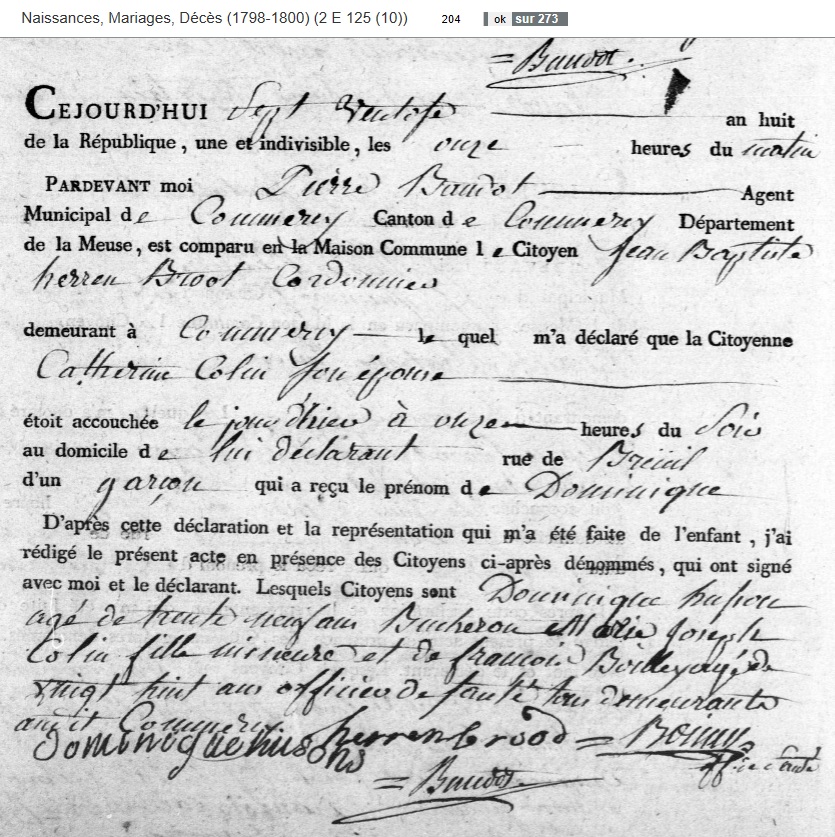 Naissances, Mariages, Décès (1798-1800) (2 E 125 (10)) 204 ok sur 273
= Baudot.
CEJOURD'HUI Sept Ventose an huit
de la République, une et indivisible, les onze heures du matin
PARDEVANT moi Pierre Baudot Agent
Municipal de Commercy Canton de Commercy Département
de la Meuse, est comparu en la Maison Commune le Citoyen Jean Baptiste
herren Broot Cordonnier
demeurant à Commercy le quel m'a déclaré que la Citoyenne
Catherine Colin son épouse
étoit accouchée le jour d'hier à onze heures du Soir
au domicile de lui déclarant rue de Breüil
d'un garçon qui a reçu le prénom de Dominique
D'après cette déclaration et la représentation qui m'a été faite de l'enfant, j'ai
rédigé le présent acte en présence des Citoyens ci-après dénommés, qui ont signé
avec moi et le déclarant. Lesquels Citoyens sont Dominique husson
agé de trente neuf ans Bucheron et Marie Joseph
Colin fille mineure et de francois agé de
vingt huit ans officier de santé tous demeurants
audit Commercy
dominique husons herrenbrood =
officier de santé
= Baudot